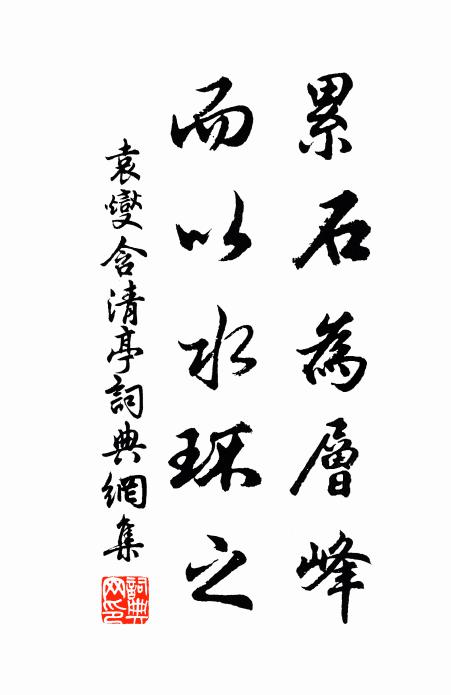 累石為層峰
而以水环之
袁燮含清亭詞典網集
詞典
网印